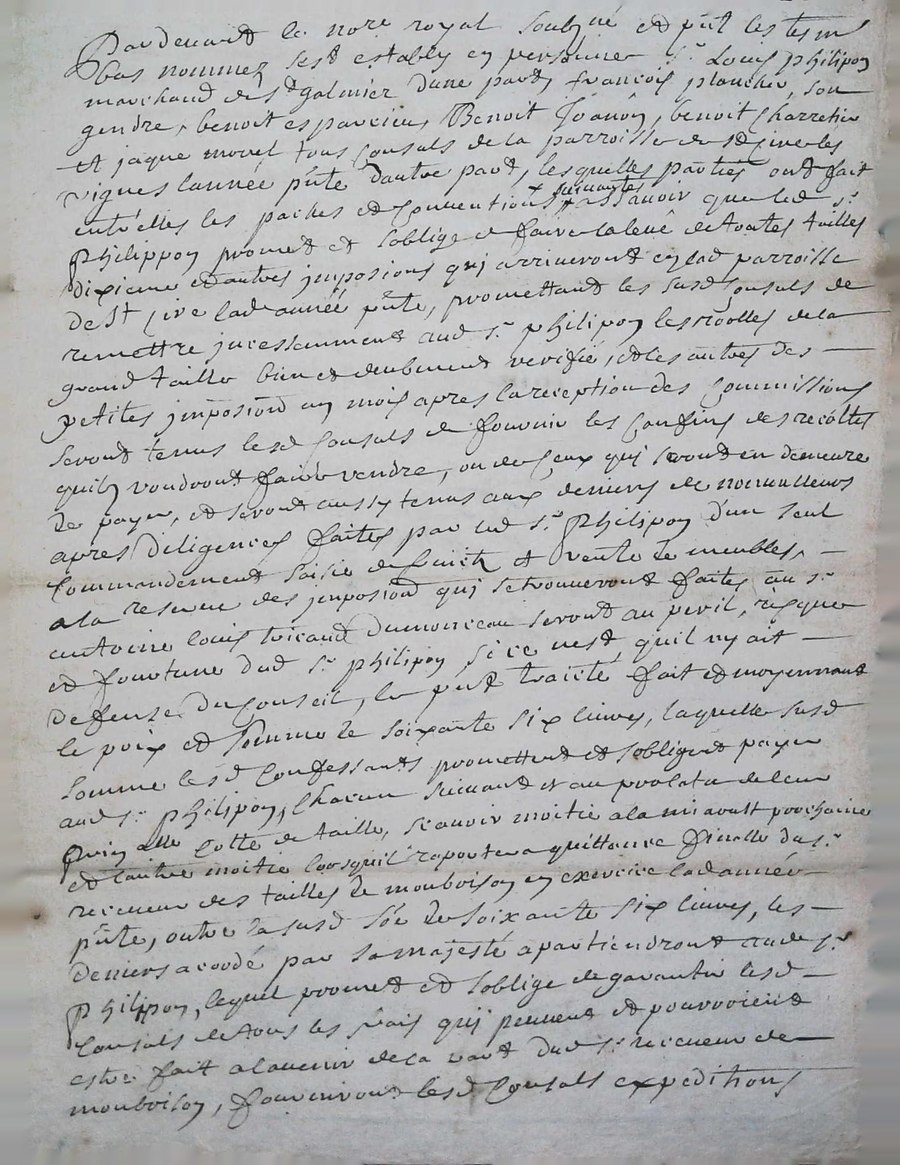 Pardevant le nore royal soubné et pnt les tesm
bas nommez sest estably en personne sr Louis philipon
marchand de st galmier d'une part, francois planchet, son
gendre, benoit esparcieu, Benoit Joanon, benoit Charretier
et jaque morel tous Consuls de la parroisse de st jive les
vignes lannée pnte d'autre part, lesquelles parties ont fait
entr'elles les paches et conventions suivantes assavoir que led sr
philippon promet et soblige de faire la levé de toutes tailles
dixieme et autres jmposions qui arriveront en lad parroisse
de St jive lad année pnte, promettant les susd Consuls de
remettre jncessemment aud sr philipon les roolles de la
grand taille bien et deubment verifié, et les autres des
petites jmposions un mois apres la reception des Commissions
seront tenus lesd Consuls de fournir les Confins des recoltes
quils voudront faire vendre, ou de Ceux qui seront en demeure
de payer, et seront aussy tenus aux deniers de nonvalleurs
apres diligences faites par led sr philipon d'un seul
Commandement saisie de fruits et vente de meubles,
a la reserve des jmposions qui se trouveront faites au sr
antoine louis tricaud dumonceau seront au peril, risque
et fourtune dud sr philipon si ce nest, quil ny ait
deffense du Conseil, le pnt traité fait et moyennant
le prix et somme de soixante six livres, laquelle susd
somme lesd Confessants promettent et sobligent payer
aud sr philipon, Chacun suivant et au prolata de leur
cotte de taille, scavoir moitié a la miaoust prochaine
et lautre moitié lorsquil raportera quittance finalle du sr
receveur des tailles de monbrison en exercice lad année
pnte, outre la susd sôe de soixante six livres, les
deniers acordé par sa majesté apartiendront aud sr
philippon, lequel promet et soblige de garantir lesd
Consuls de tous les frais qui peuvent et pourroient
estre fait a lavenir de la part dud sr receveur de
monbrison, fourniront lesd Consuls expeditions